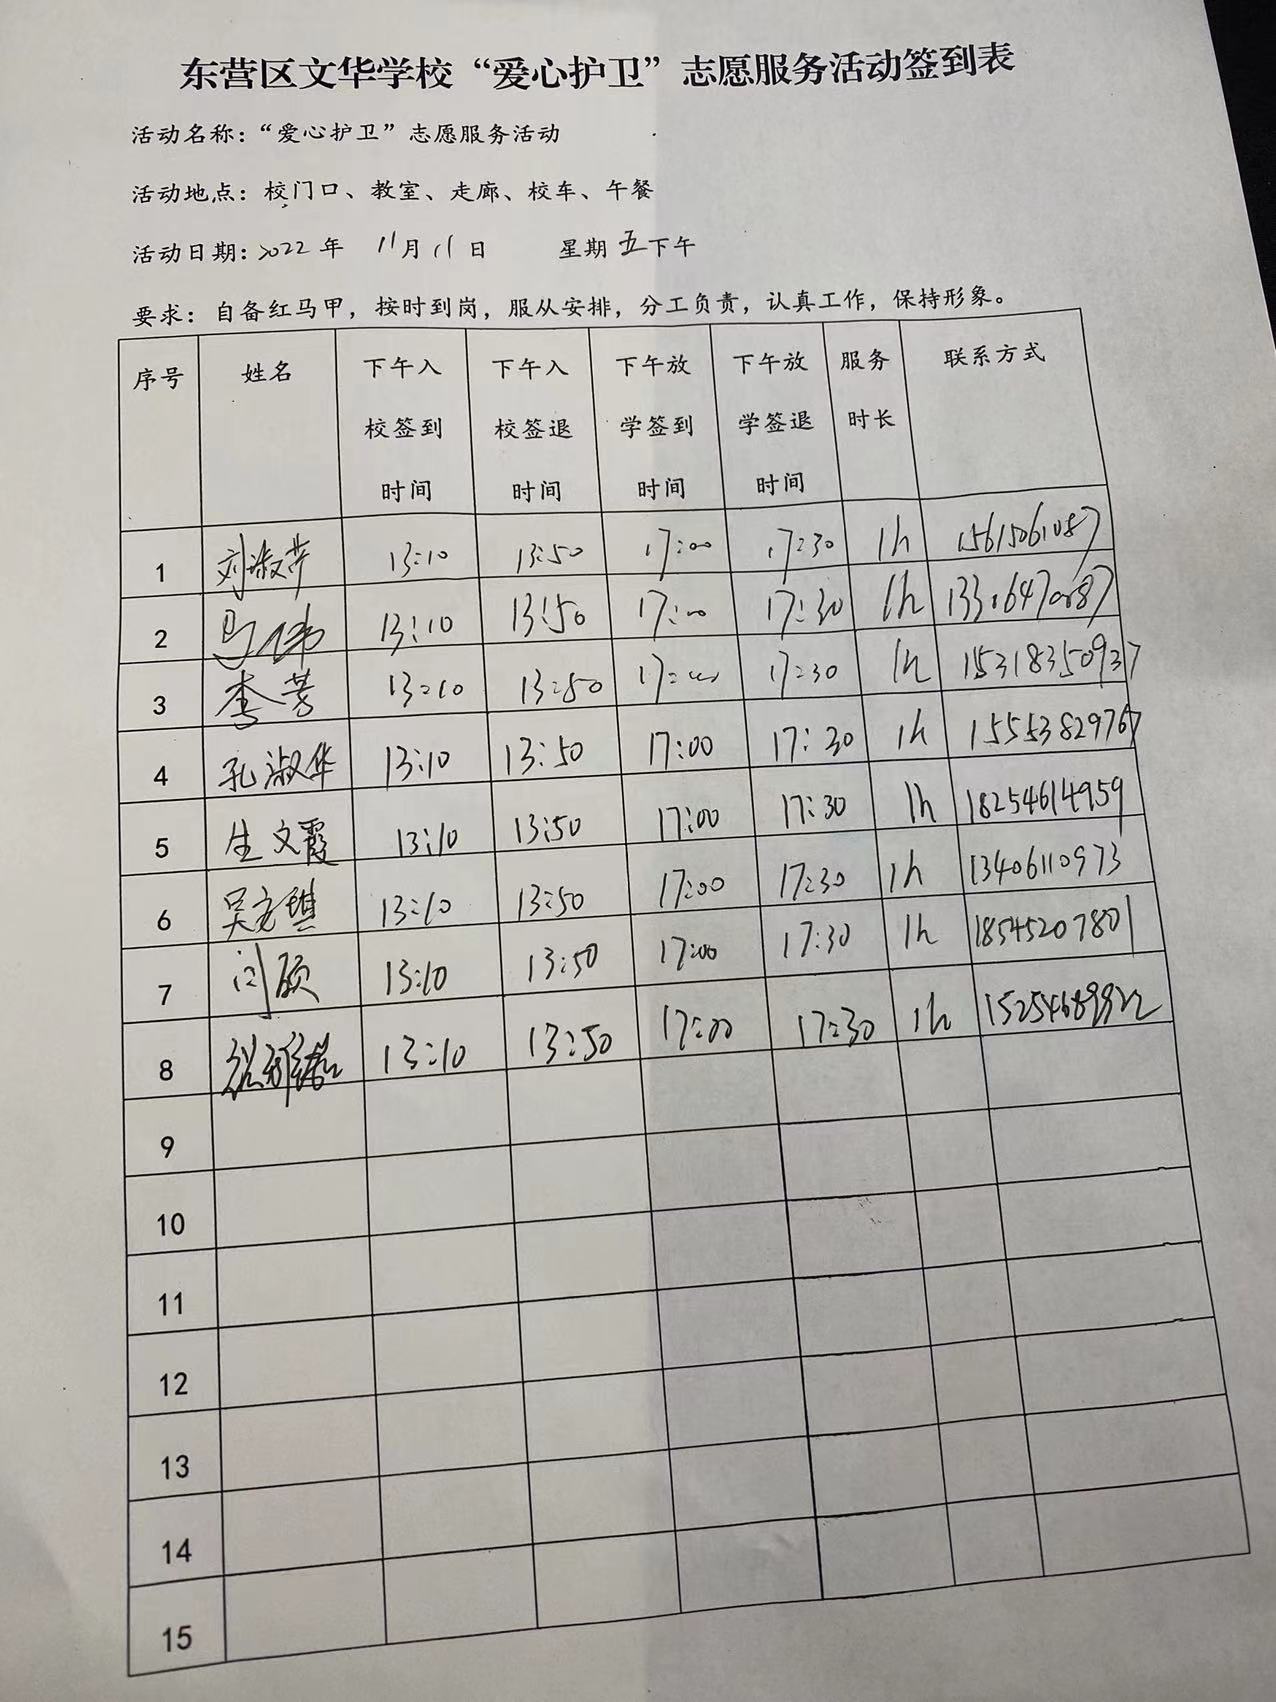 东营区文华学校“爱心护卫”志愿服务活动签到表
活动名称：“爱心护卫”志愿服务活动
活动地点：校门口、教室、走廊、校车、午餐
活动日期：2022年 11月11日 星期五下午
要求：自备红马甲，按时到岗，服从安排，分工负责，认真工作，保持形象。
序号 姓名 下午入校签到时间 下午入校签退时间 下午放学签到时间 下午放学签退时间 服务时长 联系方式
1 刘淑芹 13:10 13:50 17:00 17:30 1h 15615061087
2 马伟 13:10 13:50 17:00 17:30 1h
3 李芳 13:10 13:50 17:00 17:30 1h 15318350937
4 孔淑华 13:10 13:50 17:00 17:30 1h 15553829767
5 生文霞 13:10 13:50 17:00 17:30 1h 18254614959
6 13:10 13:50 17:00 17:30 1h 13406110973
7 闫硕 13:10 13:50 17:00 17:30 1h 18545207801
8 13:10 13:50 17:00 17:30 1h
9
10
11
12
13
14
15